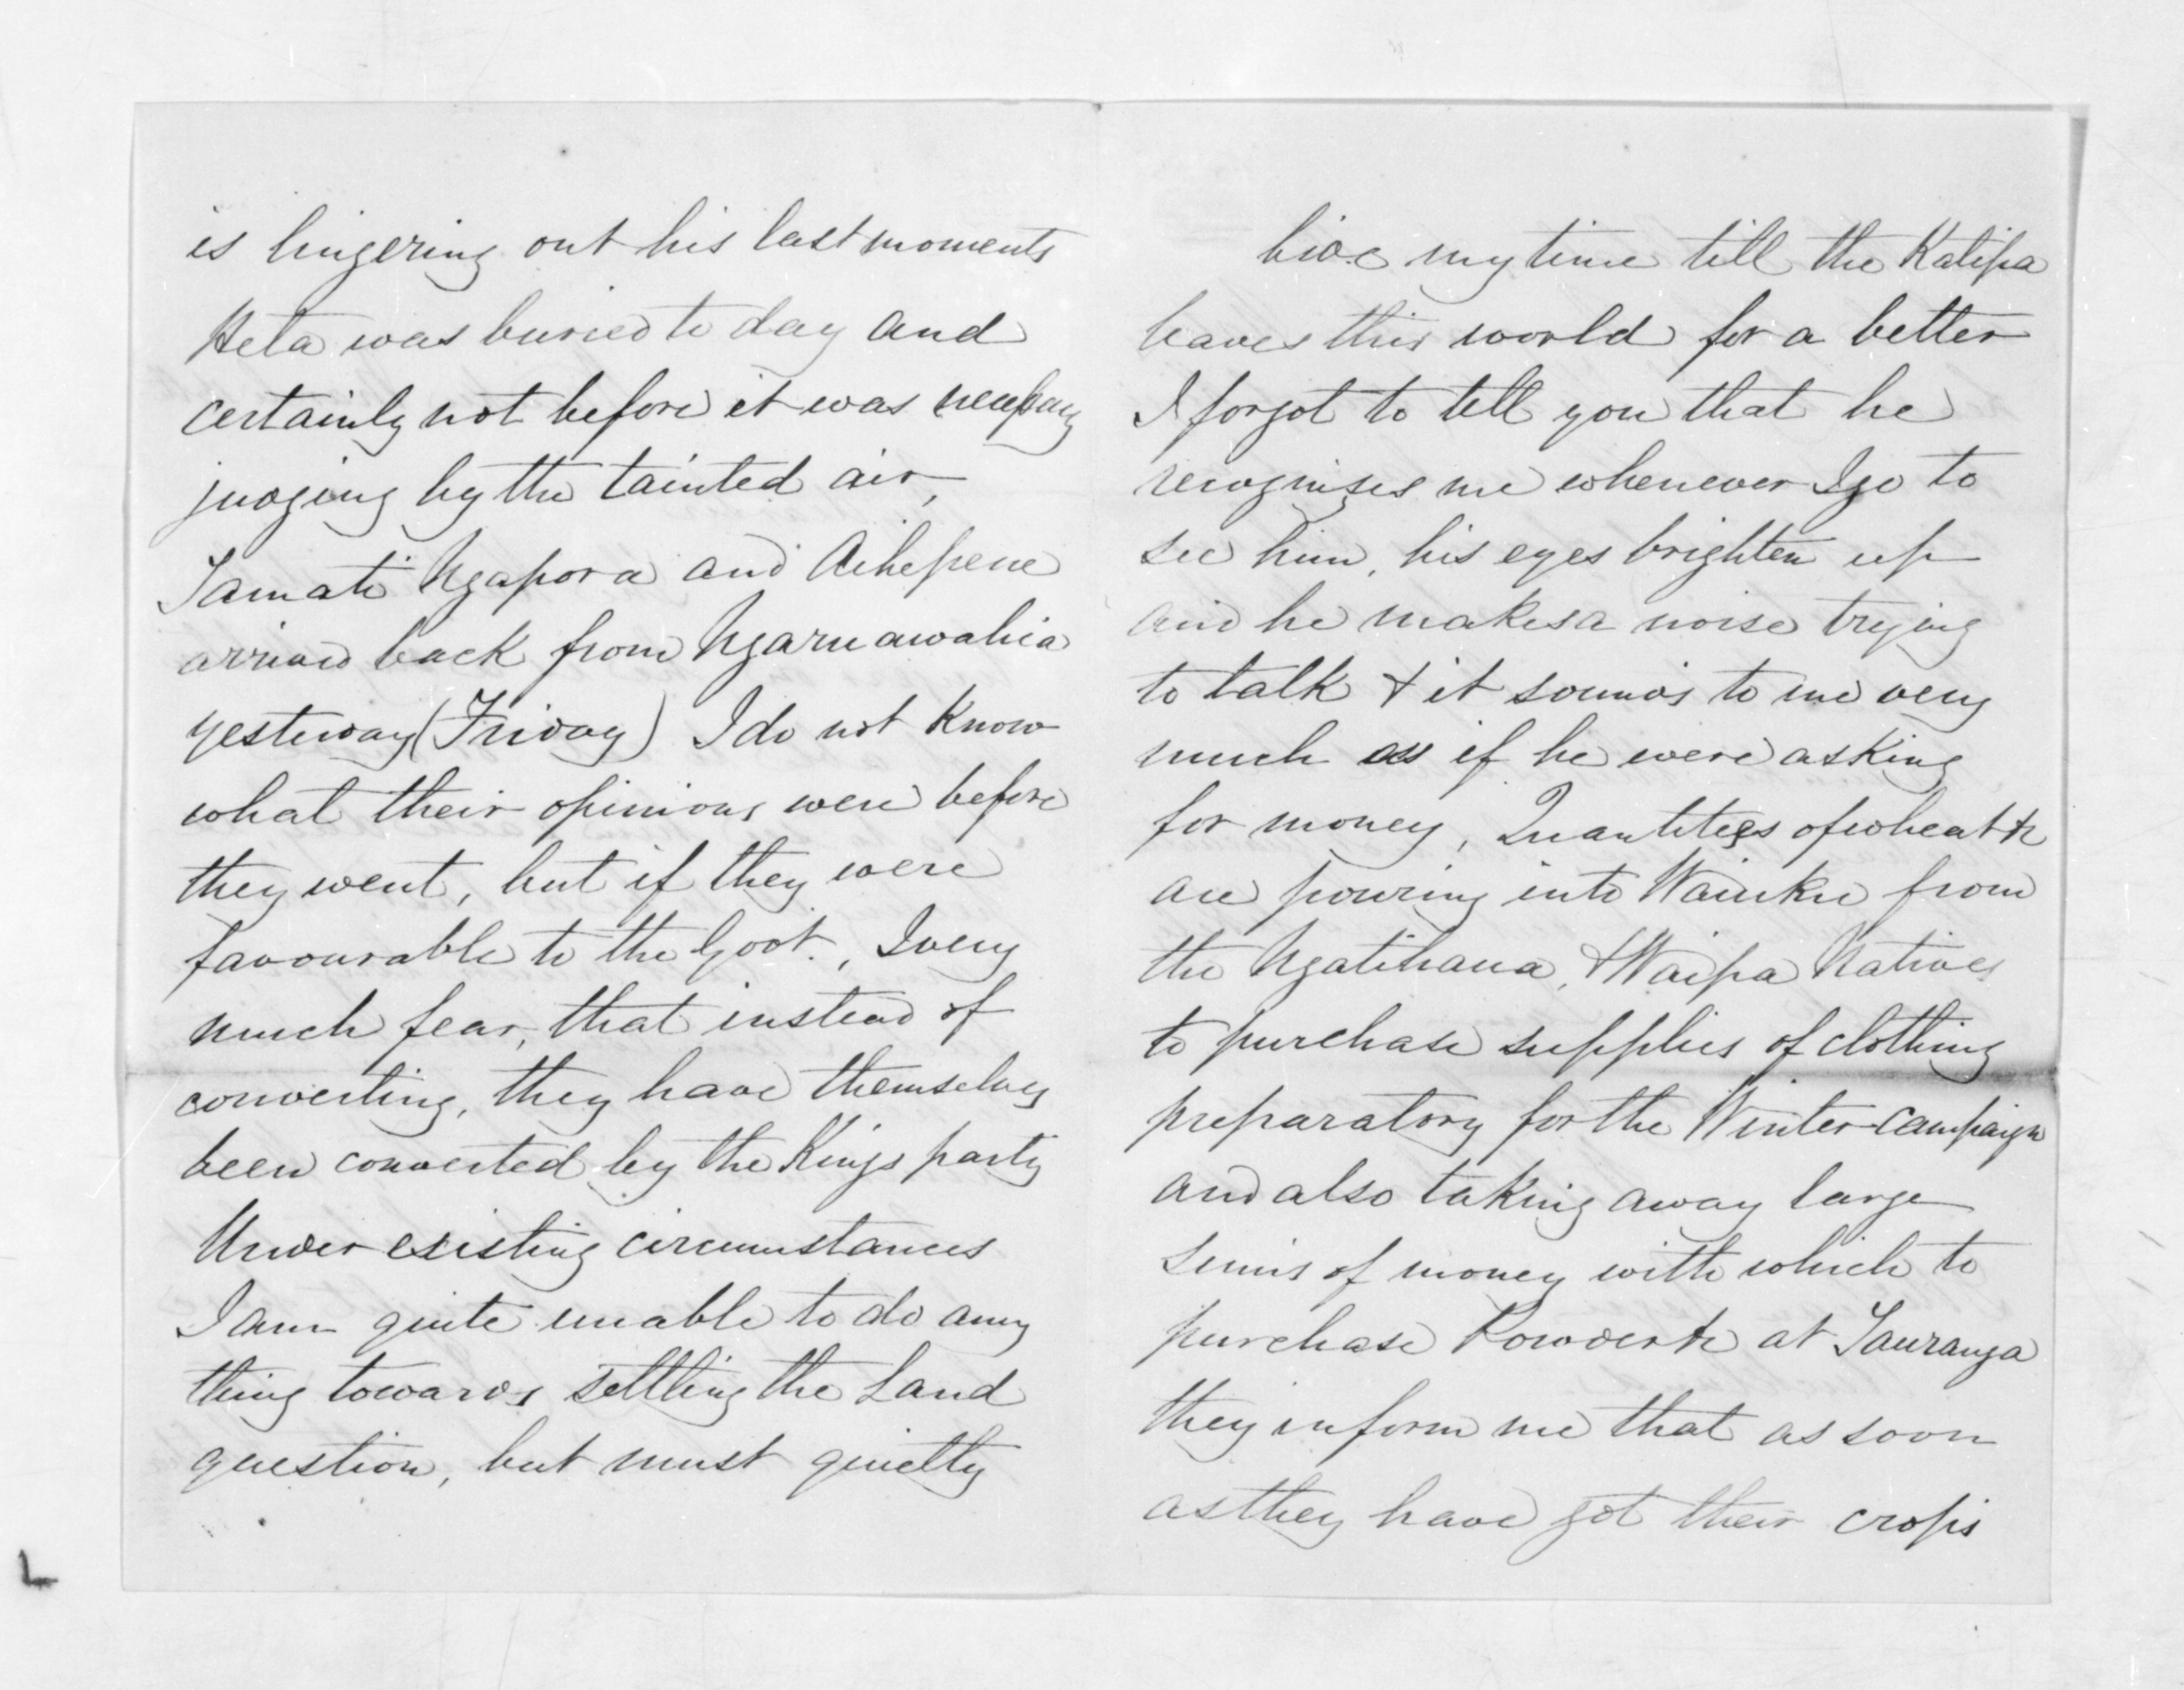 is lingering out his last moments
Heta was buried to day and
certainly not before it was necessary
judging by the tainted air,
Tamati Ngapora and Aihepene
arrived back from Ngaruawahia
yesterday (Friday) I do not know
what their opinions were before
they went, but if they were
favourable to the Govt., I very
much fear, that instead of
converting, they have themselves
been converted by the Kings party
Under existing circumstances
I am quite unable to do any
thing towards settling the Land
question, but must quietly
bide my time till the Katipa
leaves this world for a better
I forgot to tell you that he
recognises me whenever I go to
see him, his eyes brighten up
and he makes a noise trying
to talk & it sounds to me very
much as if he were asking
for money, Quantities of wheat &c
are pouring into Waiuku from
the Ngatihaua, & Waipa Natives
to purchase supplies of clothing
preparatory for the Winter campaign
and also taking away large
sums of money with which to
purchase Powder &c at Tauranga
they inform me that as soon
as they have got their crops